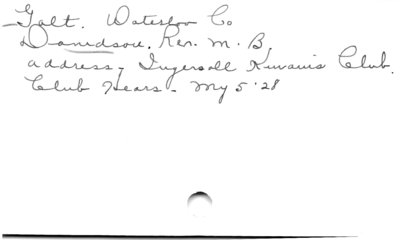 Galt. Waterloo Co
Davidson. Rev. M. B.
address, Ingersoll Kiwanis Club.
Club Hears - My 5 '28